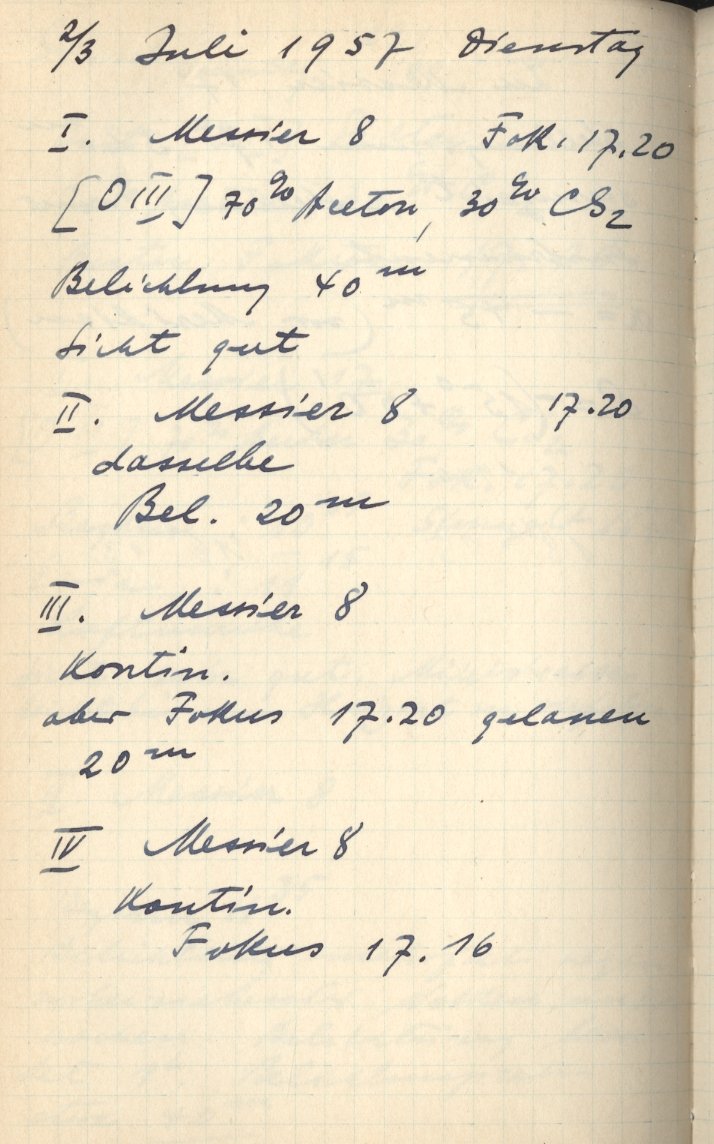 2/3 Juli 1957 Dienstag
I. Messier 8 Fok. 17.20
[O III] 70% Aceton, 30% CS2
Belichtung 40m
Sicht gut
II. Messier 8 17.20
dasselbe
Bel. 20m
III. Messier 8
Kontin.
aber Fokus 17.20 gelassen
20m
IV Messier 8
Kontin.
Fokus 17.16